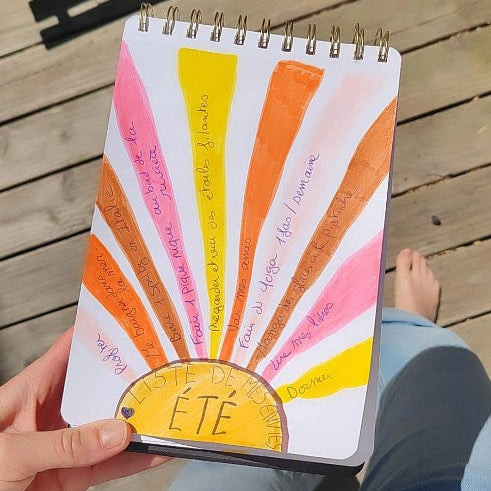 Profiter
Me baigner dans
la mer
Boire 1 Spritz en Italie
Faire 1 pique nique au bord de la
rivière
Regarder des étoiles filantes
Voir mes amis
Faire du Yoga 1 fois / semaine
Manger des glaces à la pistache
Lire mes livres
Dormir
LISTE DE MES ENVIES
ÉTÉ